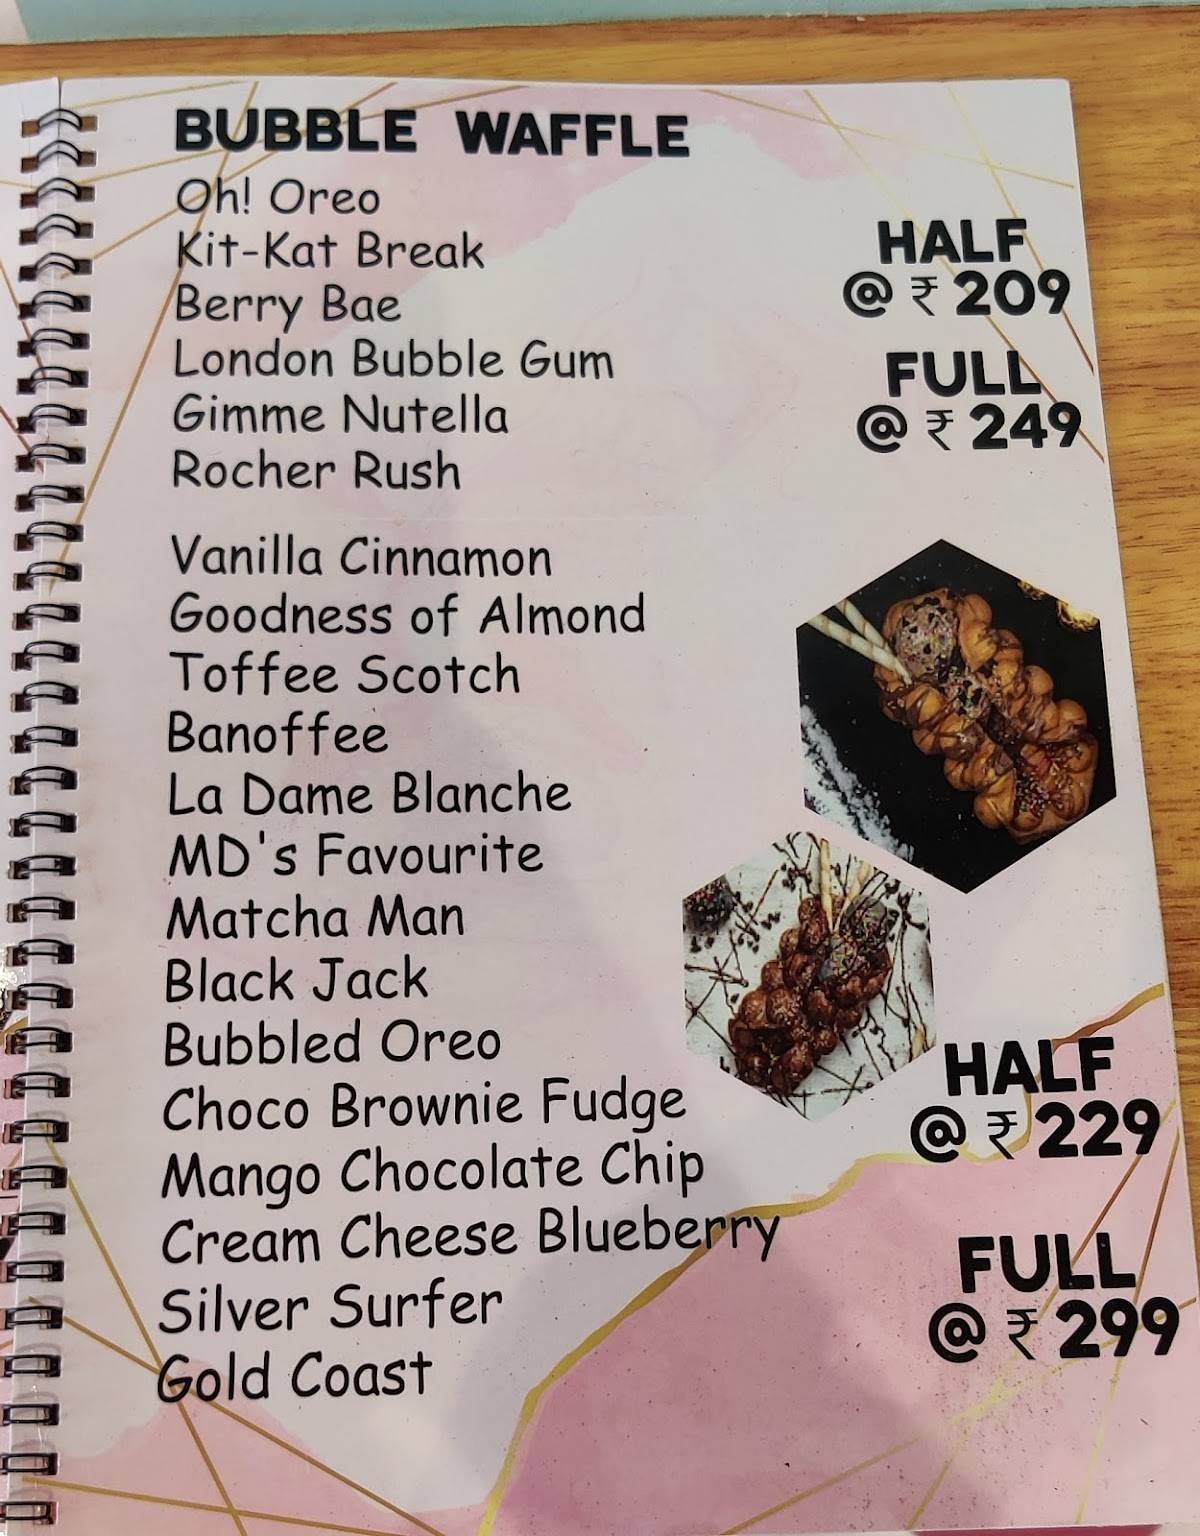 BUBBLE WAFFLE
Oh! Oreo
Kit-Kat Break
Berry Bae
London Bubble Gum
Gimme Nutella
Rocher Rush
HALF
@ ₹ 209
FULL
@ ₹ 249
Vanilla Cinnamon
Goodness of Almond
Toffee Scotch
Banoffee
La Dame Blanche
MD's Favourite
Matcha Man
Black Jack
Bubbled Oreo
Choco Brownie Fudge
Mango Chocolate Chip
Cream Cheese Blueberry
Silver Surfer
Gold Coast
HALF
@ ₹ 229
FULL
@ ₹ 299